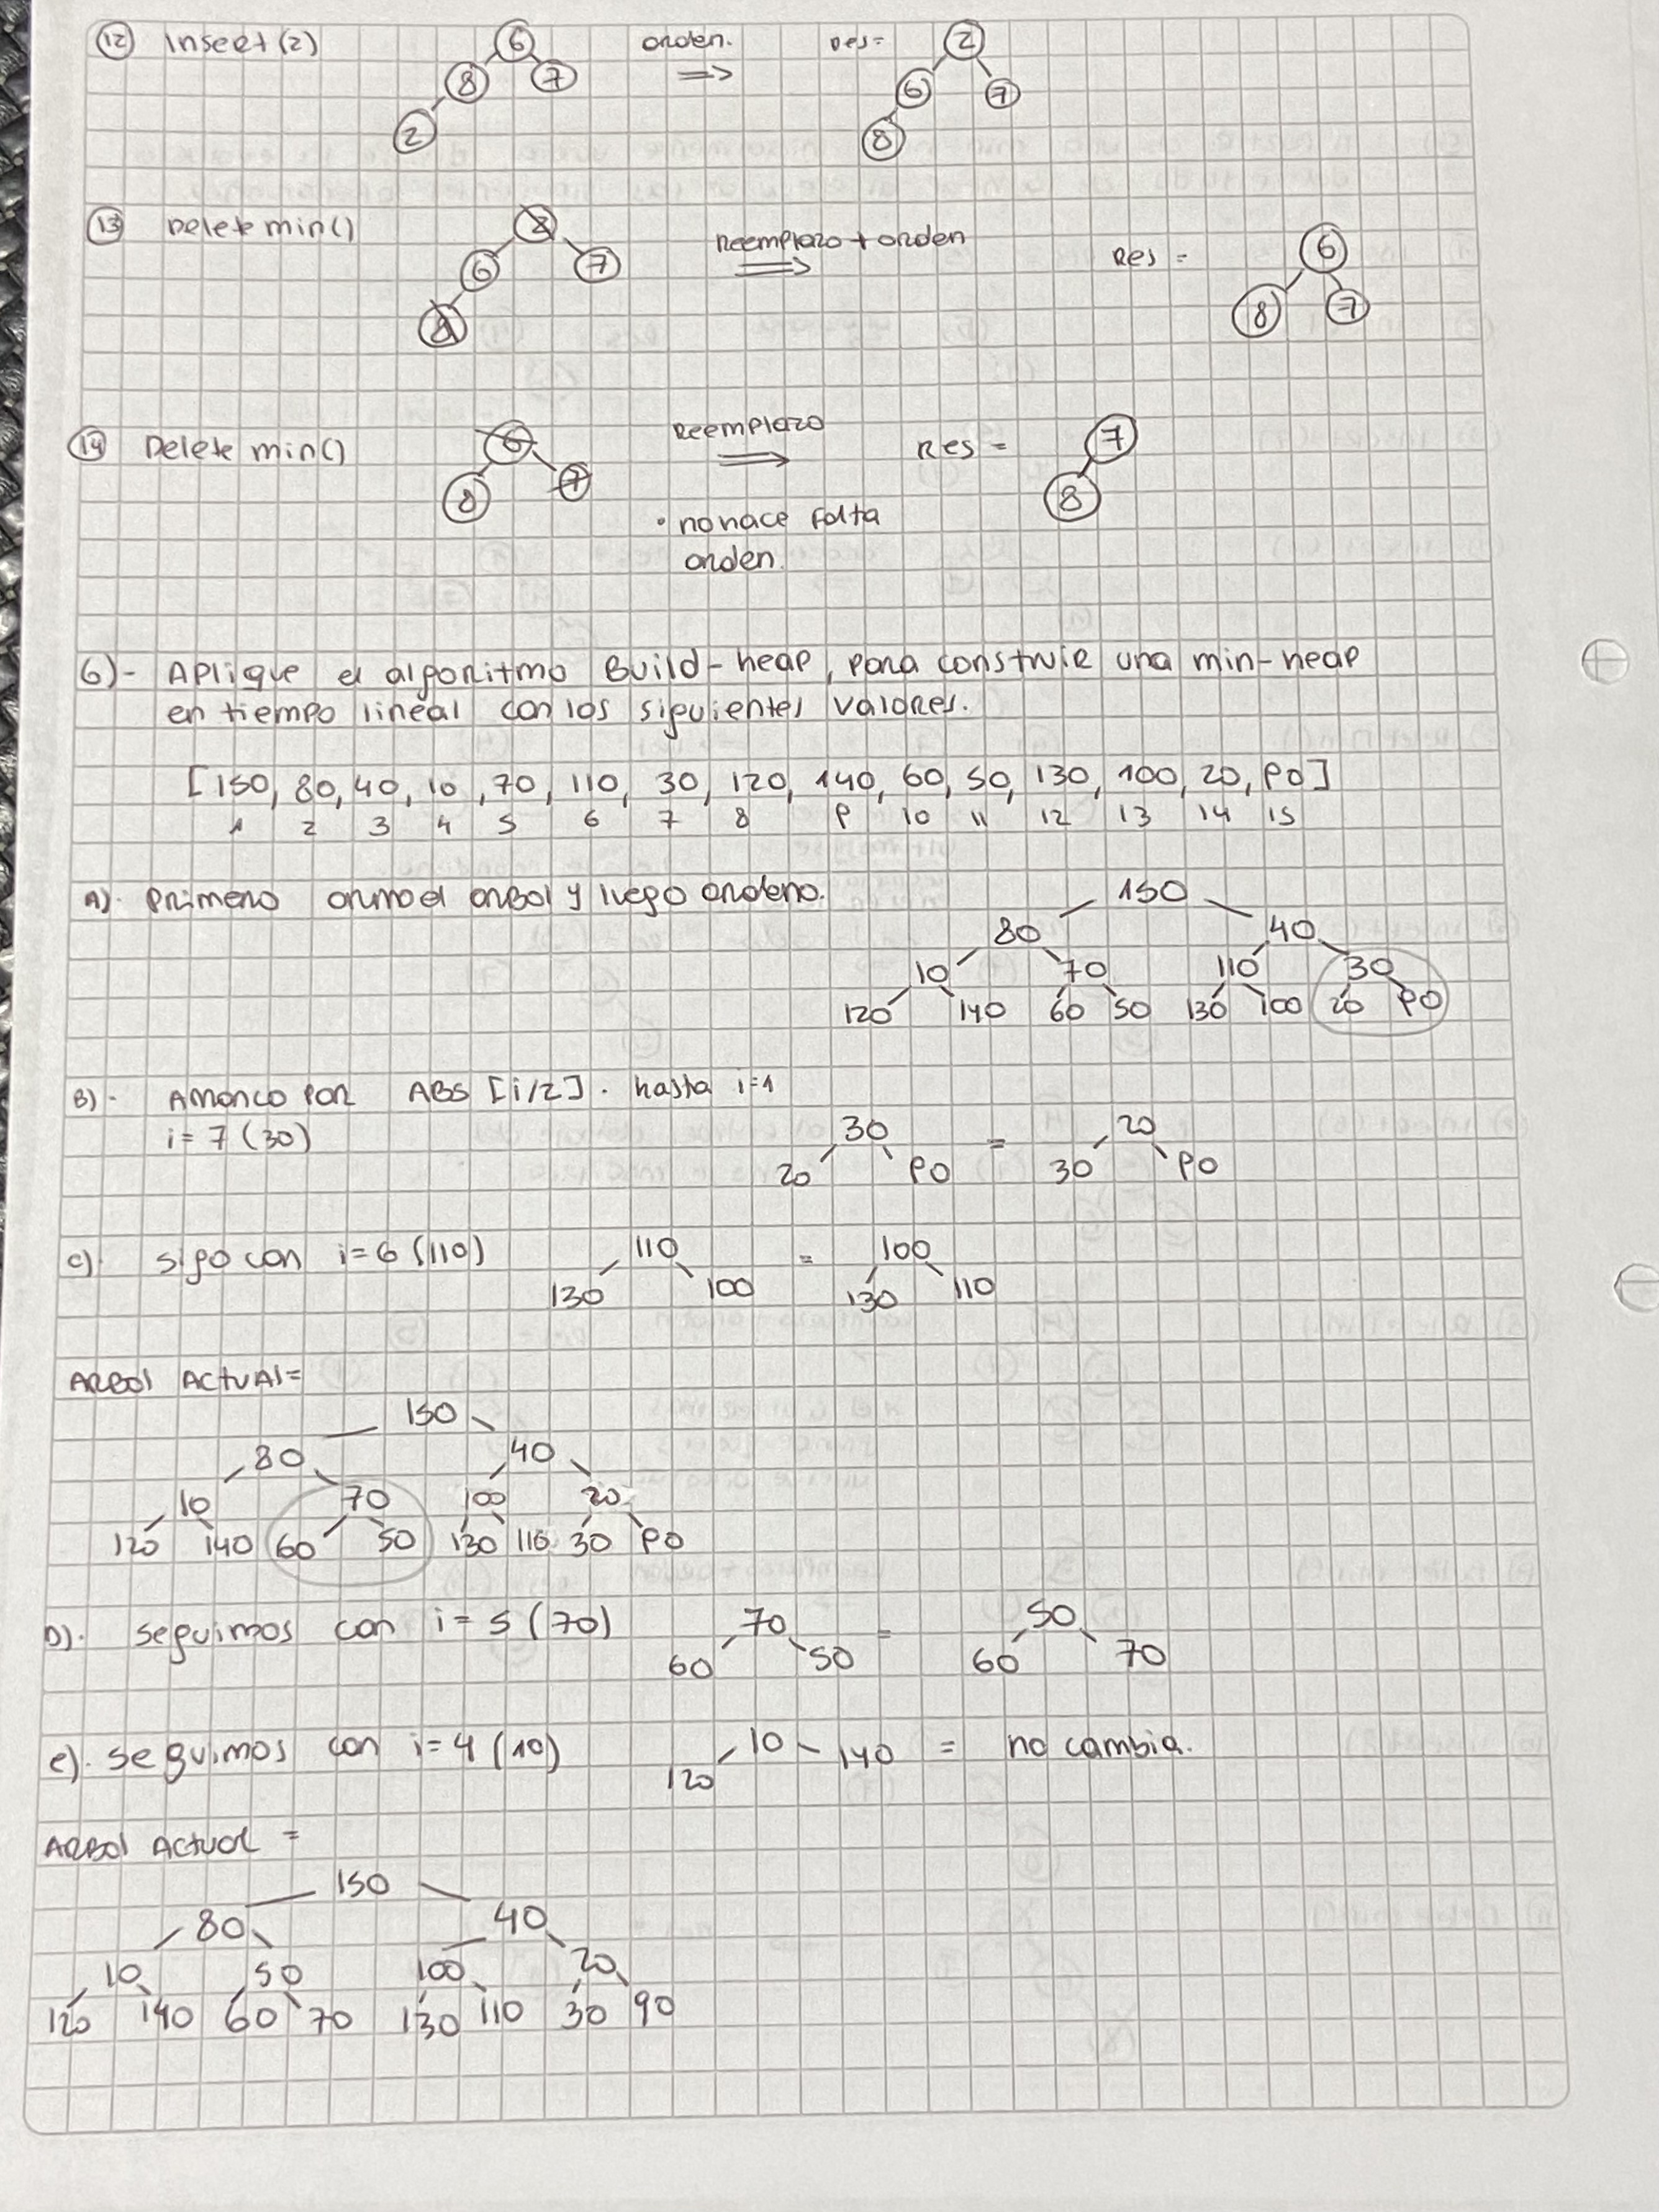 12 Insert(2) 6 orden. Res= 2
8 7 ⇒ 6 7
2 8
13 Delete min() 2 Reemplazo + orden Res = 6
6 7 ⇒ 8 7
8
14 Delete min() 6 Reemplazo Res = 7
8 7 ⇒ 8
• no hace falta
orden.
6)- Aplique el algoritmo Build-heap, para construir una min-heap
en tiempo lineal con los siguientes valores.
[150, 80, 40, 10, 70, 110, 30, 120, 140, 60, 50, 130, 100, 20, 90]
1 2 3 4 5 6 7 8 9 10 11 12 13 14 15
A). Primero armo el arbol y luego ordeno. 150
80 40
10 70 110 30
120 140 60 50 130 100 20 90
B)- Arranco por ABS [i/2]. hasta i=1
i= 7 (30) 30 = 20
20 90 30 90
C). Sigo con i=6 (110) 110 = 100
130 100 130 110
Arbol Actual=
150
80 40
10 70 100 20
120 140 60 50 130 110 30 90
D). Seguimos con i= 5 (70) 70 = 50
60 50 60 70
e). Seguimos con i=4 (10) 10 140 = no cambia.
120
Arbol Actual =
150
80 40
10 50 100 20
120 140 60 70 130 110 30 90